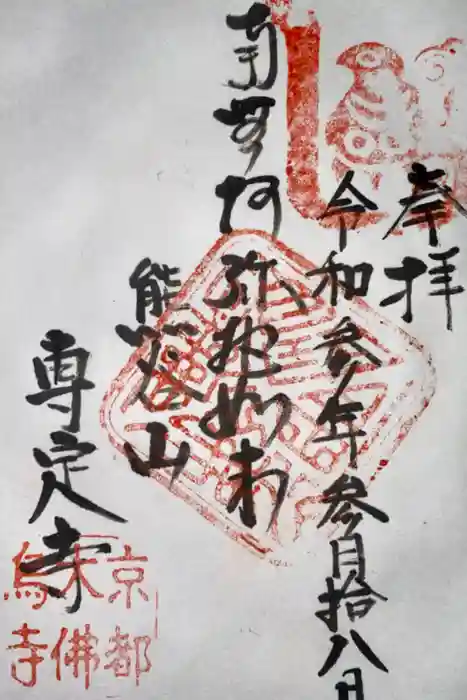 奉拝
令和参年参月拾八日
南無阿弥陀如来
熊谷山
専定寺
京都
木佛
烏寺